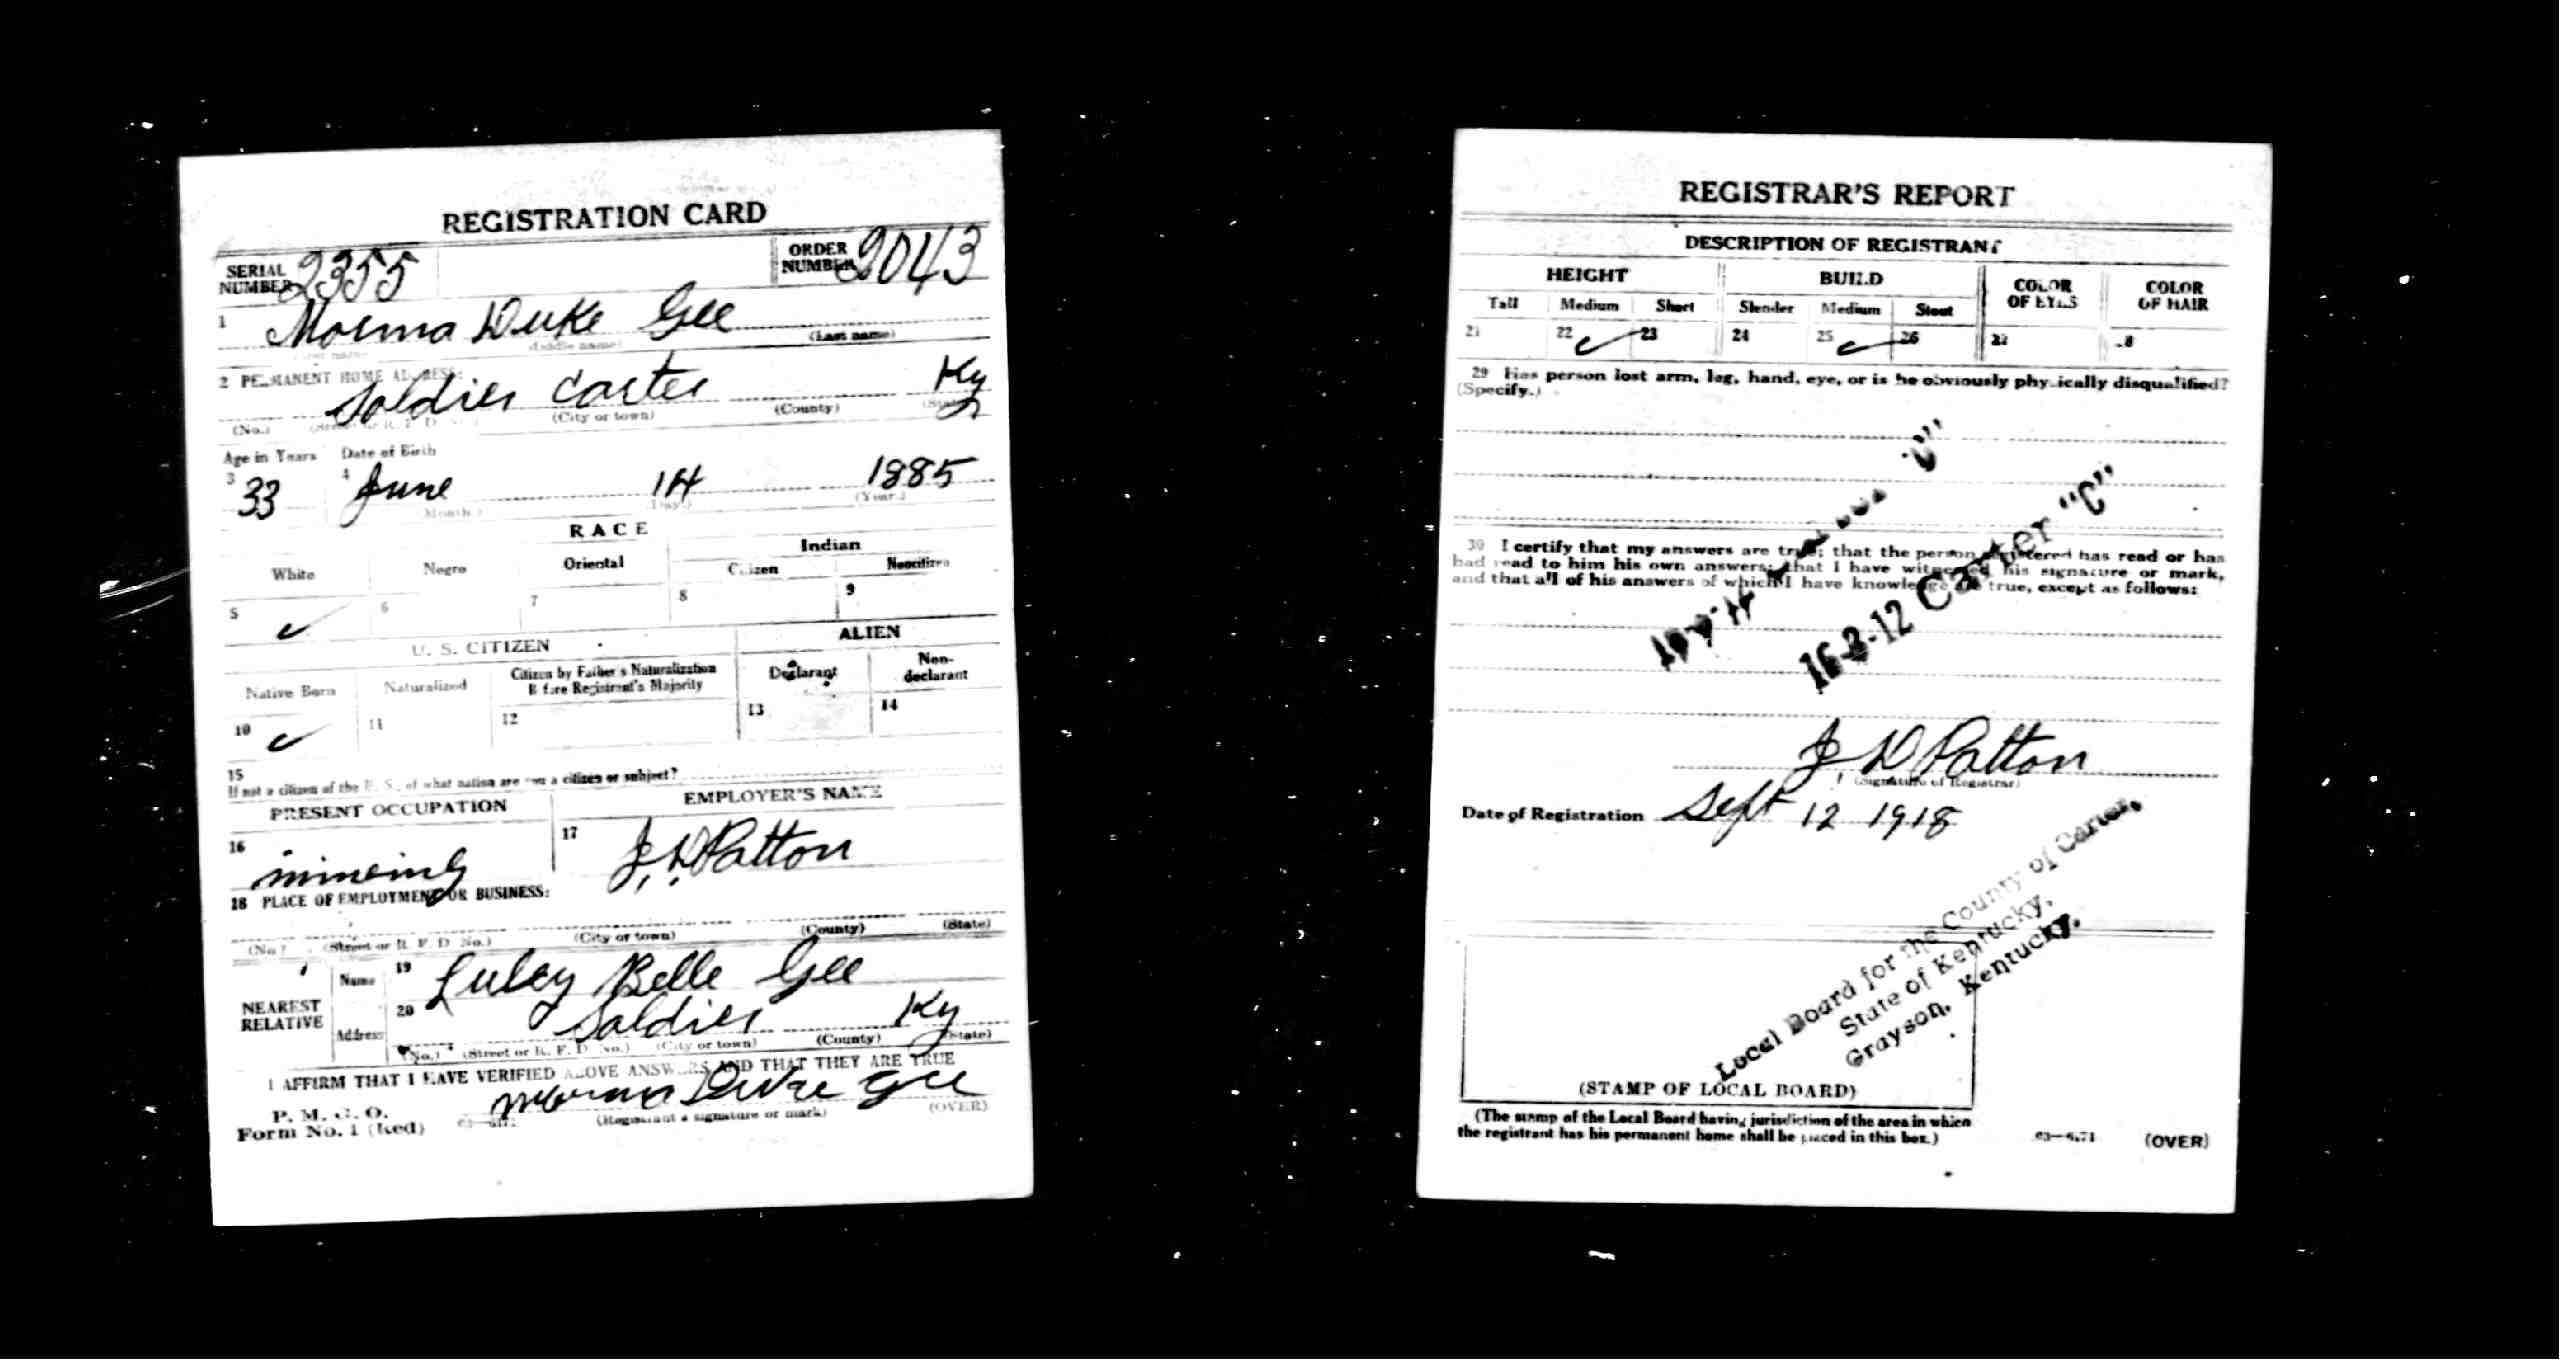 REGISTRATION CARD
SERIAL NUMBER 2355 ORDER NUMBER 2043
1 Morma Duke Gee
(Middle name) (Last name)
2 PERMANENT HOME ADDRESS:
Soldier Carter Ky
(No.) (Street or R. F. D. No.) (City or town) (County) (State)
Age in Years Date of Birth
3 33 4 June 14 1885
(Month.) (Day.) (Year.)
RACE
White Negro Oriental Indian
Citizen Noncitizen
5 ✓ 6 7 8 9
U. S. CITIZEN ALIEN
Native Born Naturalized Citizen by Father's Naturalization Before Registrant's Majority Declarant Non-declarant
10 ✓ 11 12 13 14
15
If not a citizen of the U. S., of what nation are you a citizen or subject?
PRESENT OCCUPATION EMPLOYER'S NAME
16 mineing 17 J. D. Patton
18 PLACE OF EMPLOYMENT OR BUSINESS:
(No.) (Street or R. F. D. No.) (City or town) (County) (State)
NEAREST RELATIVE
Name 19 Luley Belle Gee
Address 20 Soldier Ky
(No.) (Street or R. F. D. No.) (City or town) (County) (State)
I AFFIRM THAT I HAVE VERIFIED ABOVE ANSWERS AND THAT THEY ARE TRUE
P. M. G. O.
Form No. 1 (Red) Morma Duke Gee
(Registrant's signature or mark) (OVER)
REGISTRAR'S REPORT
DESCRIPTION OF REGISTRANT
HEIGHT BUILD COLOR OF EYES COLOR OF HAIR
Tall Medium Short Slender Medium Stout
21 22 ✓ 23 24 25 ✓ 26
29 Has person lost arm, leg, hand, eye, or is he obviously physically disqualified?
(Specify.)
30 I certify that my answers are true; that the person registered has read or has
had read to him his own answers; that I have witnessed his signature or mark,
and that all of his answers of which I have knowledge are true, except as follows:
16-2-12 Carter "C"
J. D Patton
(Signature of Registrar)
Date of Registration Sept 12 1918
Local Board for the County of Carter,
State of Kentucky,
Grayson, Kentucky.
(STAMP OF LOCAL BOARD)
(The stamp of the Local Board having jurisdiction of the area in which
the registrant has his permanent home shall be placed in this box.)
(OVER)